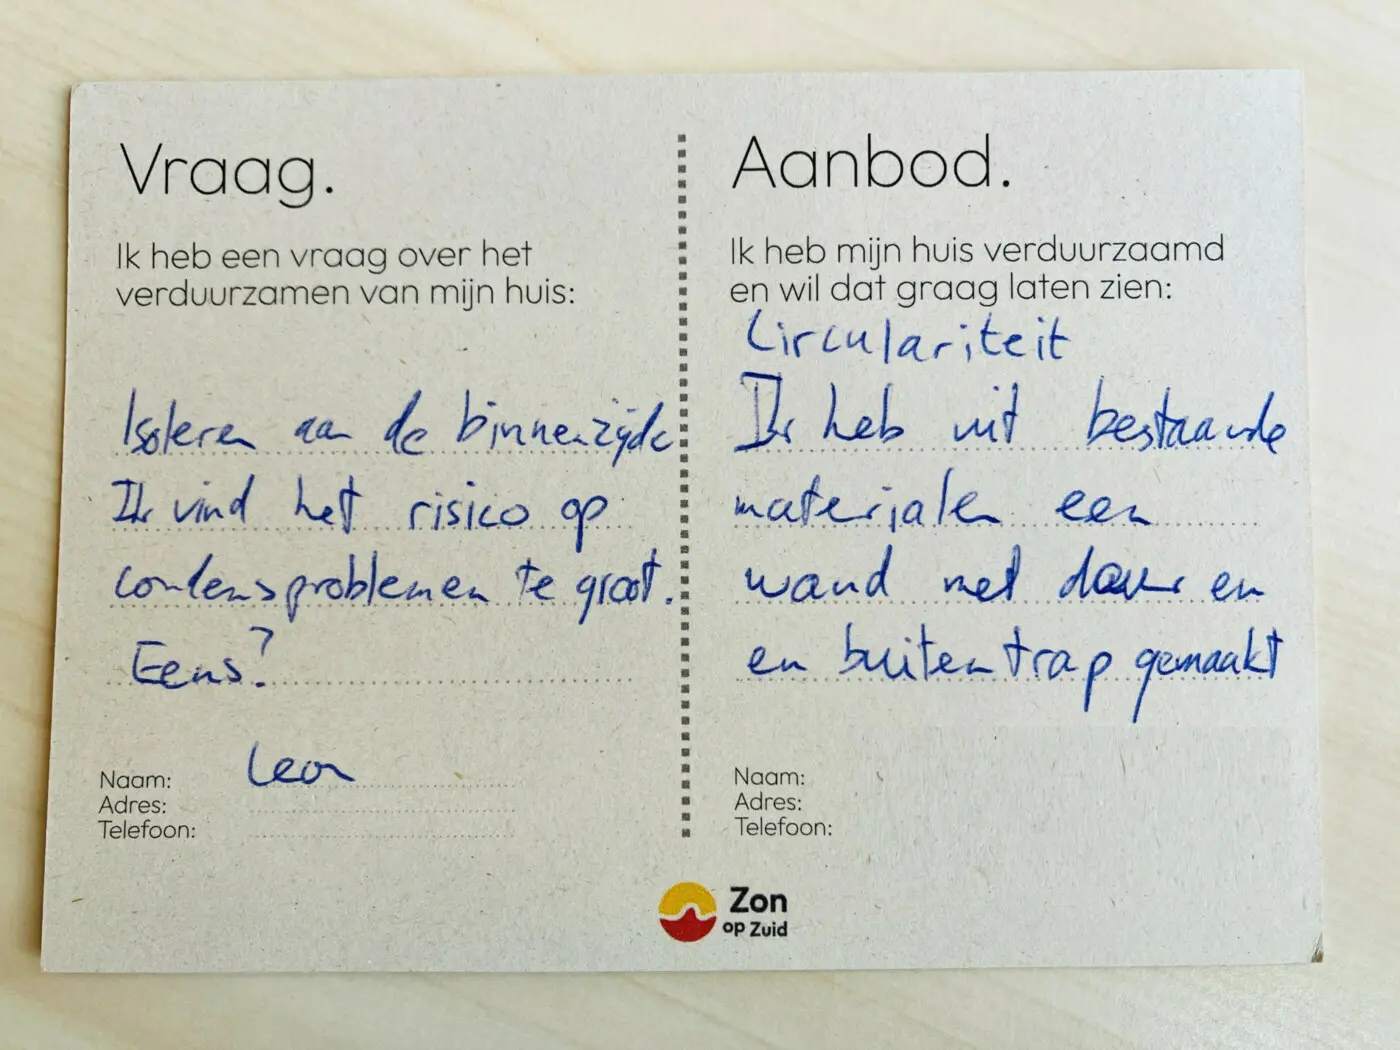 Vraag.
Ik heb een vraag over het
verduurzamen van mijn huis:
Isoleren aan de binnenzijde
Ik vind het risico op
condensproblemen te groot.
Eens?
Naam: Leon
Adres:
Telefoon:
Aanbod.
Ik heb mijn huis verduurzaamd
en wil dat graag laten zien:
Circulariteit
Ik heb uit bestaande
materialen een
wand met deur en
en buitentrap gemaakt
Naam:
Adres:
Telefoon:
Zon
op Zuid